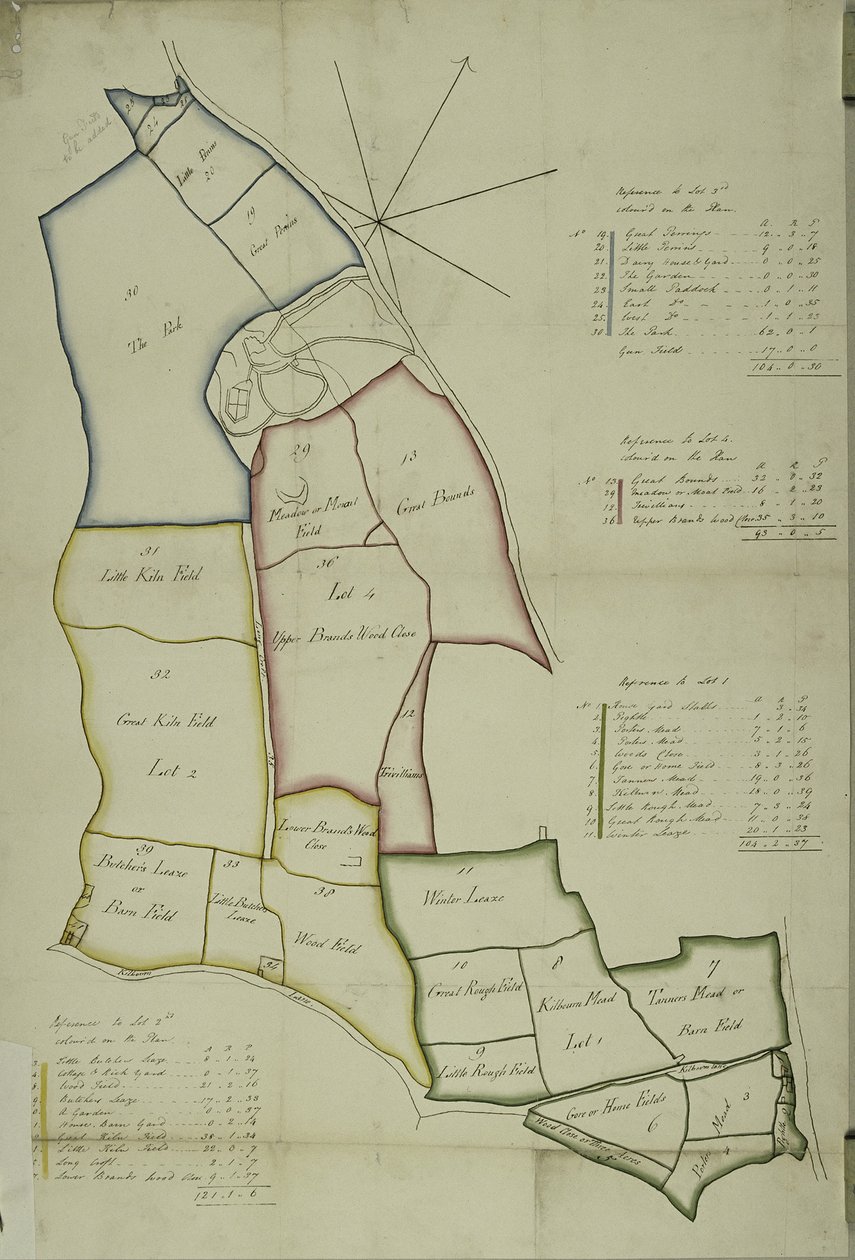 Gun Field
to be added
25
24
21
Little Perins
20
19
Great Perrins
30
The Park
29
Meadow or Moat
Field
13
Great Bounds
31
Little Kiln Field
36
Lot 4
Upper Brands Wood Close
32
Great Kiln Field
Lot 2
Long Croft
35
12
Trivillians
Lower Brands Wood
Close
39
Butcher's Leaze
or
Barn Field
33
Little Butchers
Leaze
38
Wood Field
34
41
Kilbourn
Lane
11
Winter Leaze
10
Great Rough Field
8
Kilbourn Mead
Lot 1
9
Little Rough Field
7
Tanners Mead or
Barn Field
Kilbourn lane
Gore or Home Fields
6
Wood Close or Three Acres
5
3
Mead
Porters
4
Pightle 2
Reference to Lot 3rd
colour'd on the Plan.
A. R P
No 19 Great Perrings 12 .. 3 .. 7
20. Little Perins 9 .. 0 .. 18
21. Dairy House & Yard 0 .. 0 .. 25
22. The Garden 0 .. 0 .. 30
23 Small Paddock 0 .. 1 .. 11
24. East Do. 1 .. 0 .. 35
25. West Do. 1 .. 1 .. 23
30. The Park 62 .. 0 .. 1
Gun Field 17 .. 0 .. 0
104 .. 0 .. 30
Reference to Lot 4.
colour'd on the Plan
A R P
No 13 Great Bounds 32 .. 0 .. 32
29 Meadow or Moat Field 16 .. 2 .. 23
12 Trivillians 8 .. 1 .. 20
36 Upper Brands Wood Close 35 .. 3 .. 10
93 .. 0 .. 5
Reference to Lot 1
A R P
No 1 House Yard Stalls 3 .. 34
2. Pightle 1 .. 2 .. 10
3. Porters Mead 7 .. 1 .. 6
4. Porters Mead 5 .. 2 .. 15
5. Woods Close 3 .. 1 .. 26
6. Gore or Home Field 8 .. 3 .. 26
7. Tanners Mead 19 .. 0 .. 36
8. Kilburn Mead 18 .. 0 .. 39
9 Little Rough Mead 7 .. 3 .. 24
10 Great Rough Mead 11 .. 0 .. 34
11. Winter Leaze 20 .. 1 .. 23
104 .. 2 .. 37
Reference to Lot 2nd
colour'd on the Plan
A R P
3. Little Butchers Leaze 8 .. 1 .. 24
4. Cottage & Rick Yard 0 .. 1 .. 37
8. Wood Field 21 .. 2 .. 16
9. Butchers Leaze 17 .. 2 .. 33
0. A Garden 0 .. 0 .. 37
1. House. Barn Yard 0 .. 2 .. 14
Great Kiln Field 38 .. 1 .. 34
1. Little Kiln Field 22 .. 0 .. 7
Long Croft 2 .. 1 .. 7
Lower Brands Wood Close 9 .. 1 .. 37
121 .. 1 .. 6